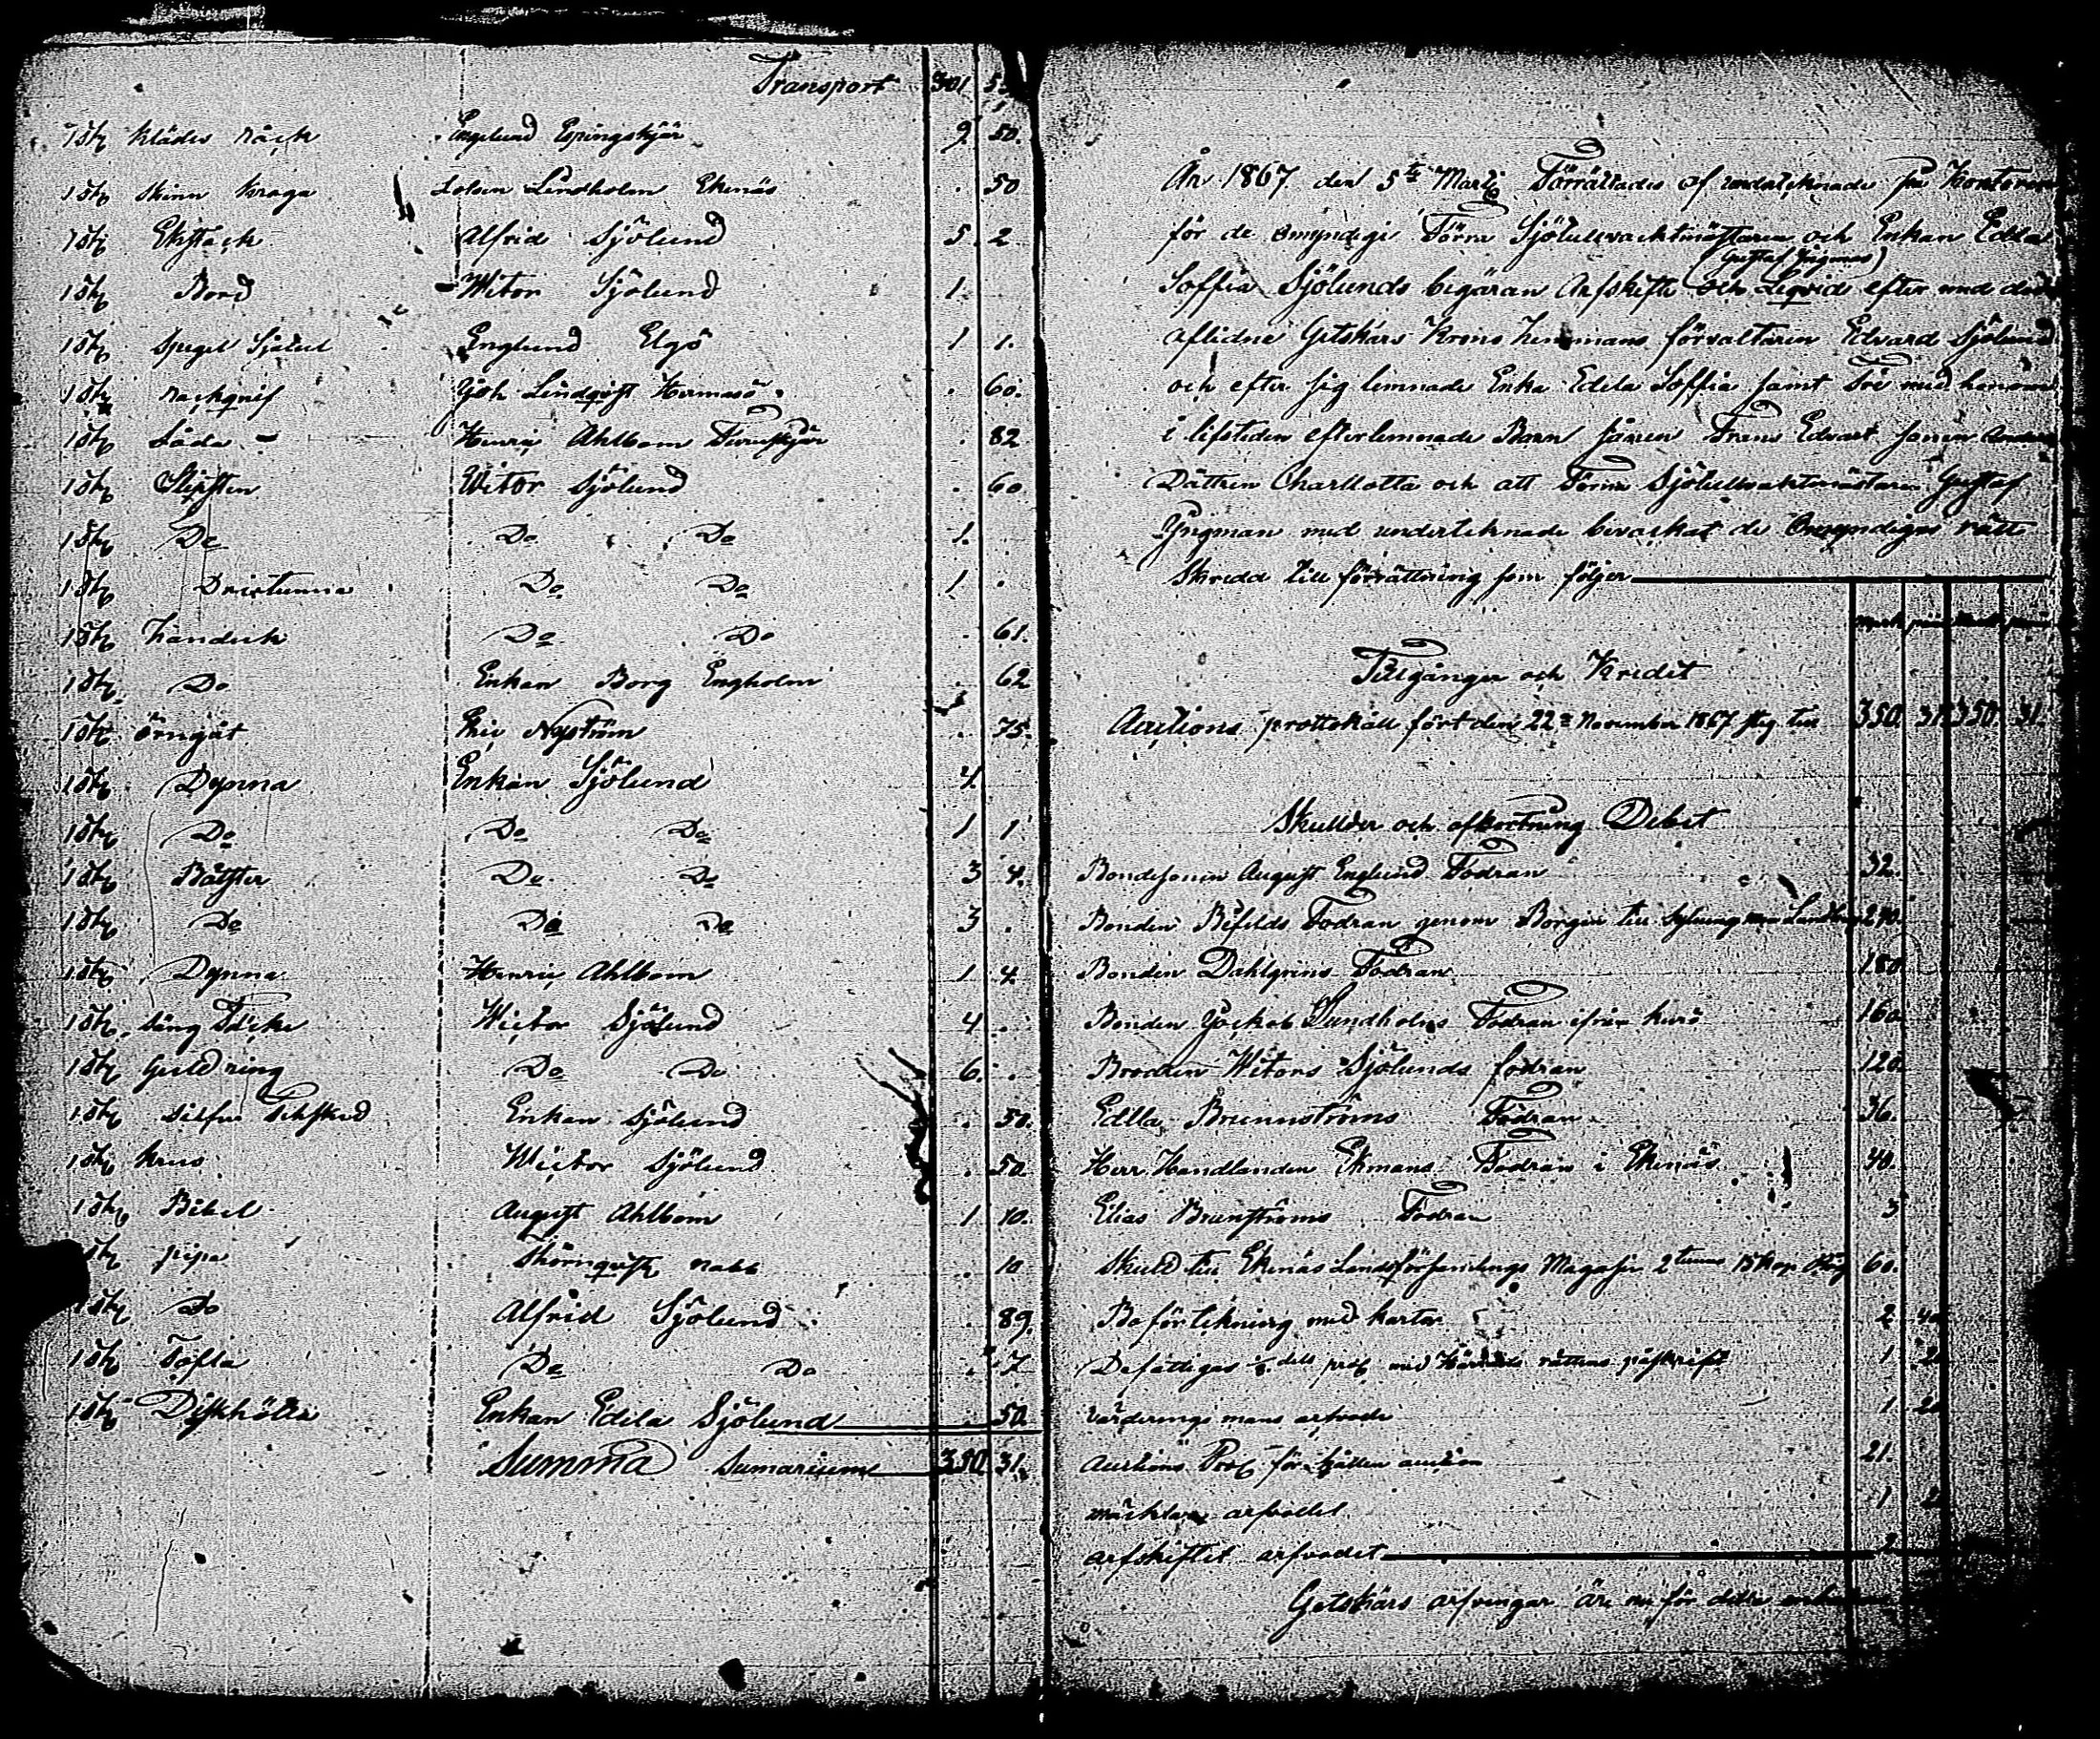 Transport 301 5
1 Stk klädes råck Engelund Espingskjär 9. 50.
1 Stk skinn kraga Lotsen Lindholm Ekenäs . 50
1 Stk Ekstäck Alfrid Sjölund 5 2
1 Stk Bord Witor Sjölund 1.
1 Stk spegel Englund Elgö 1 1.
1 Stk rackqnif Joh Lindqvist Hermansö . 60.
1 Stk Låda Henric Ahlbom . 82
1 Stk Slipsten Witor Sjölund . 60
1 Stk Do Do Do 1.
1 Stk Do Do 1 .
1 Stk handuk Do Do . 61.
1 Stk Do Enkan Borg Engholm . 62
1 Stk örngåt Eric Nyström . 75.
1 Stk Dynna Enkan Sjölund 4.
1 Stk Do Do Do 1 1
1 Stk Båtster Do Do 3 4.
1 Stk Do Do Do 3 .
1 Stk Dynna Henric Ahlbom 1 4
1 Stk säng Täcke Wictor Sjölund 4 .
1 Stk Guld ring Do Do 6. .
1 Stk silfver Teksked Enkan Sjölund . 50.
1 Stk krus Wictor Sjölund . 50.
1 Stk Bibel August Ahlbom 1 10.
Stk pipa nabb . 10
1 Stk Do Alfrid Sjölund . 89.
1 Stk Tofla Do Do . 7
1 Stk Enkan Edela Sjölund . 50
Summa Sumarium 350 31.
År 1867 den 5te Martj Förrättades af underteknade på
för de omyndigi Förra Sjötullvacktmästaren och Enkan Edla
(Gustaf Yngman)
Soffia Sjölunds begäran Arfskifte och Liqvid efter med
aflidne Getskärs Krons hemmans förvaltaren Edvard Sjölund
och efter sig lemnade Enka Edela Soffia samt Tre med honom
i lifstiden efterlemnade Barn sånen Frans Edvart sonen
Dåttren Charllotta och att Förra Sjötullvaktmästaren Gustaf
Yngman med underteknade bevackat de Omyndigas rätt
Skredd till förrättning som följer
Tillgångar och Kredit
Auctions prottokåll fört den 22a November 1867 steg till 350 31 350 31.
Skullder och afkortning Debet
Bondesonen August Englund Fodran 32.
Bonden Fodran genom Borgen till 290.
Bonden Dahlgrens Fodran 180
Bonden Jackob Sundholms Fodran ifrån 160
Brodren Witors Sjölunds fodran 120
Edlla Brunnströms Fodran 36.
Herr Handlanden Ekmans Fodran i Ekenäs 40.
Elias Brunströms Fodran 3
Skuld till Ekenäs Landsförsamlings Magasin 2 tunna 15 kap Råg 60.
Bo förtekning med kartor 2 40
Defattigas dels med Härads rättens påskrift 1 2
värderings mans arfvode 1 2
Auctions för hållen auction 21.
arfvodet 1 2
arfskiftet arfvodet 2
Getskärs arfvingar äre nu för detta